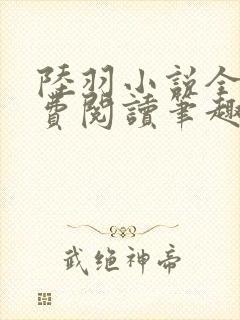 陸羽小説全
費閱讀筆趣
武绝神帝